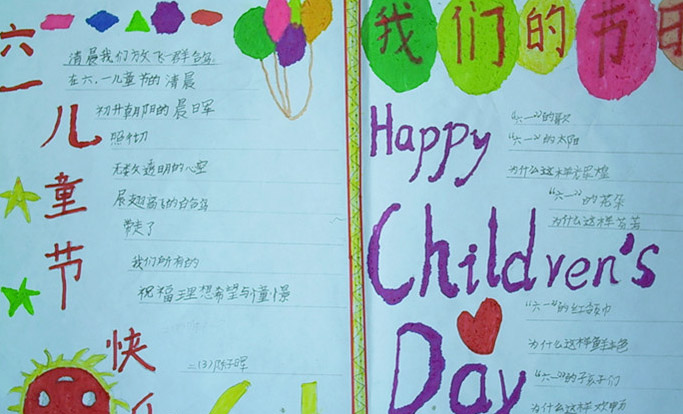 六一儿童节快乐
清晨我们放飞一群白鸟
在六.一儿童节的清晨
初升朝阳的晨晖
照彻
无数透明的心空
展翅高飞的白鸟
带走了
我们所有的
祝福理想希望与憧憬
二(3)陈子晖
我们的节日
Happy
Children's
Day
“六一”的歌
“六一”的太阳
为什么这样光辉煌
“六一”的花朵
为什么这样芬芳
“六一”的红领巾
为什么这样鲜色
“六一”的孩子们
为什么这样欢